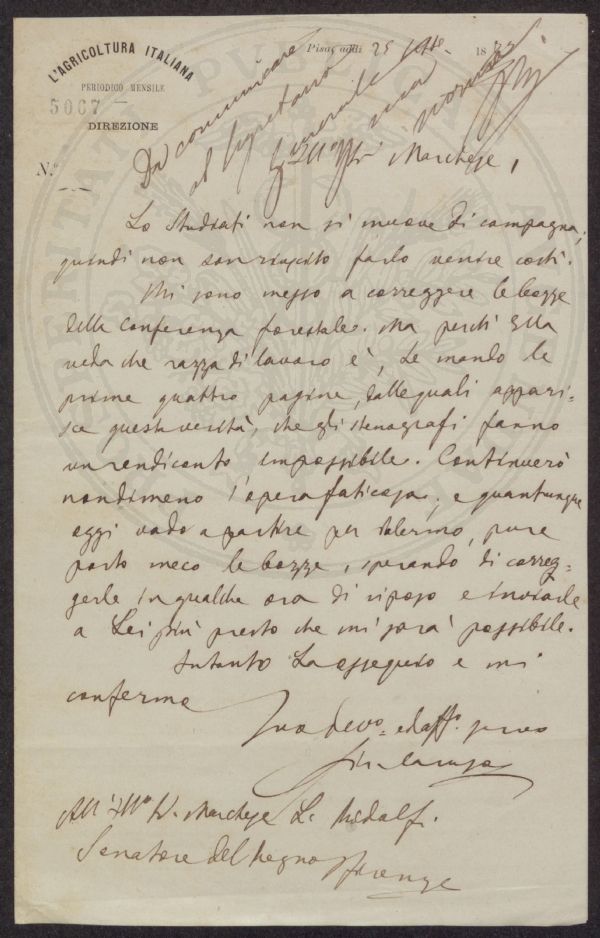 L'AGRICOLTURA ITALIANA
PERIODICO MENSILE
5067
DIREZIONE
N.°
Pisa, addì 25 18
Da comunicare
al Segretario
Generale
Marchese,
Lo Studiati non si muove di campagna,
quindi non son riuscito farlo venire costì.
Mi sono messo a correggere le bozze
della Conferenza forestale. Ma perché Ella
veda che razza di lavoro è, Le mando le
prime quattro pagine, dalle quali appari-
sce questa verità, che gli stenografi fanno
un rendiconto impossibile. Continuerò
nondimeno l'opera faticosa; e quantunque
oggi vado a partire per Salerno, pure
porto meco le bozze, sperando di correg-
gerle in qualche ora di riposo e inviarle
a Lei più presto che mi sarà possibile.
Intanto La ossequio e mi
confermo
Suo devo. ed affo. servo
Caruso
All'Illmo S. Marchese L. Ridolfi.
Senatore del Regno Firenze